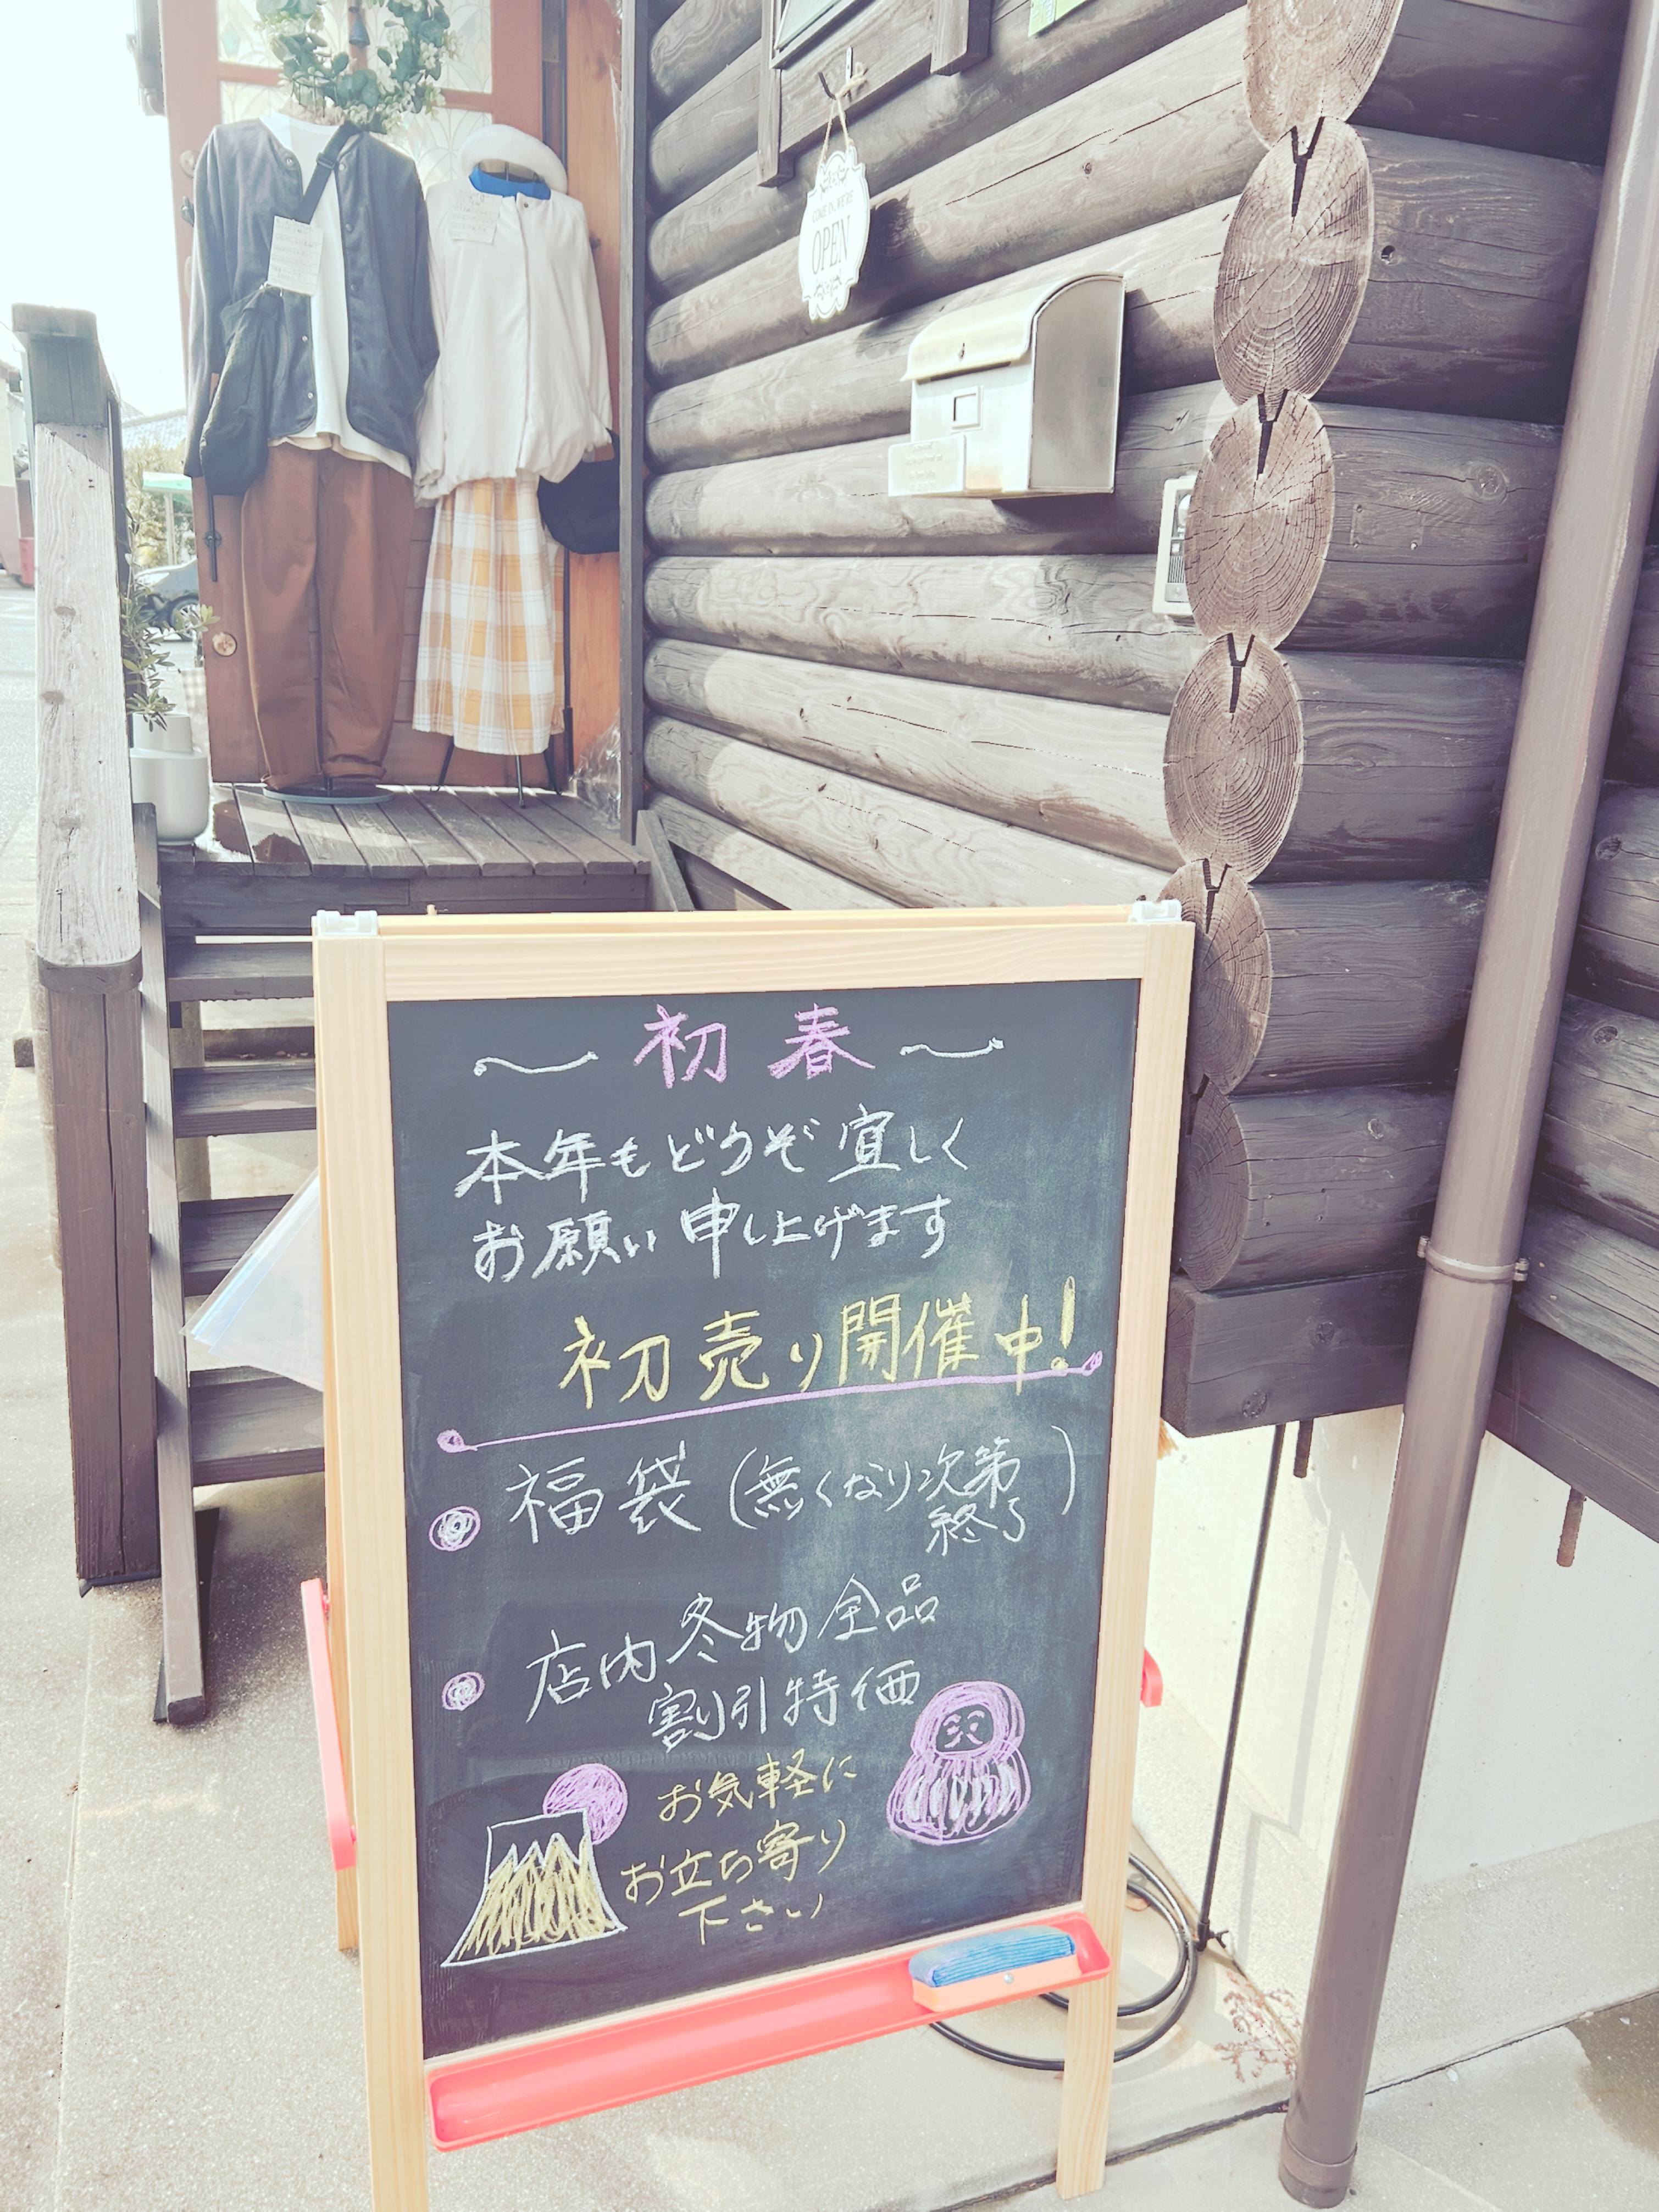 COME IN, WE'RE
OPEN
〜 初春 〜
本年もどうぞ宜しく
お願い申し上げます
初売り開催中!
福袋(無くなり次第
終了)
店内冬物全品
割引特価
お気軽に
お立ち寄り
下さい